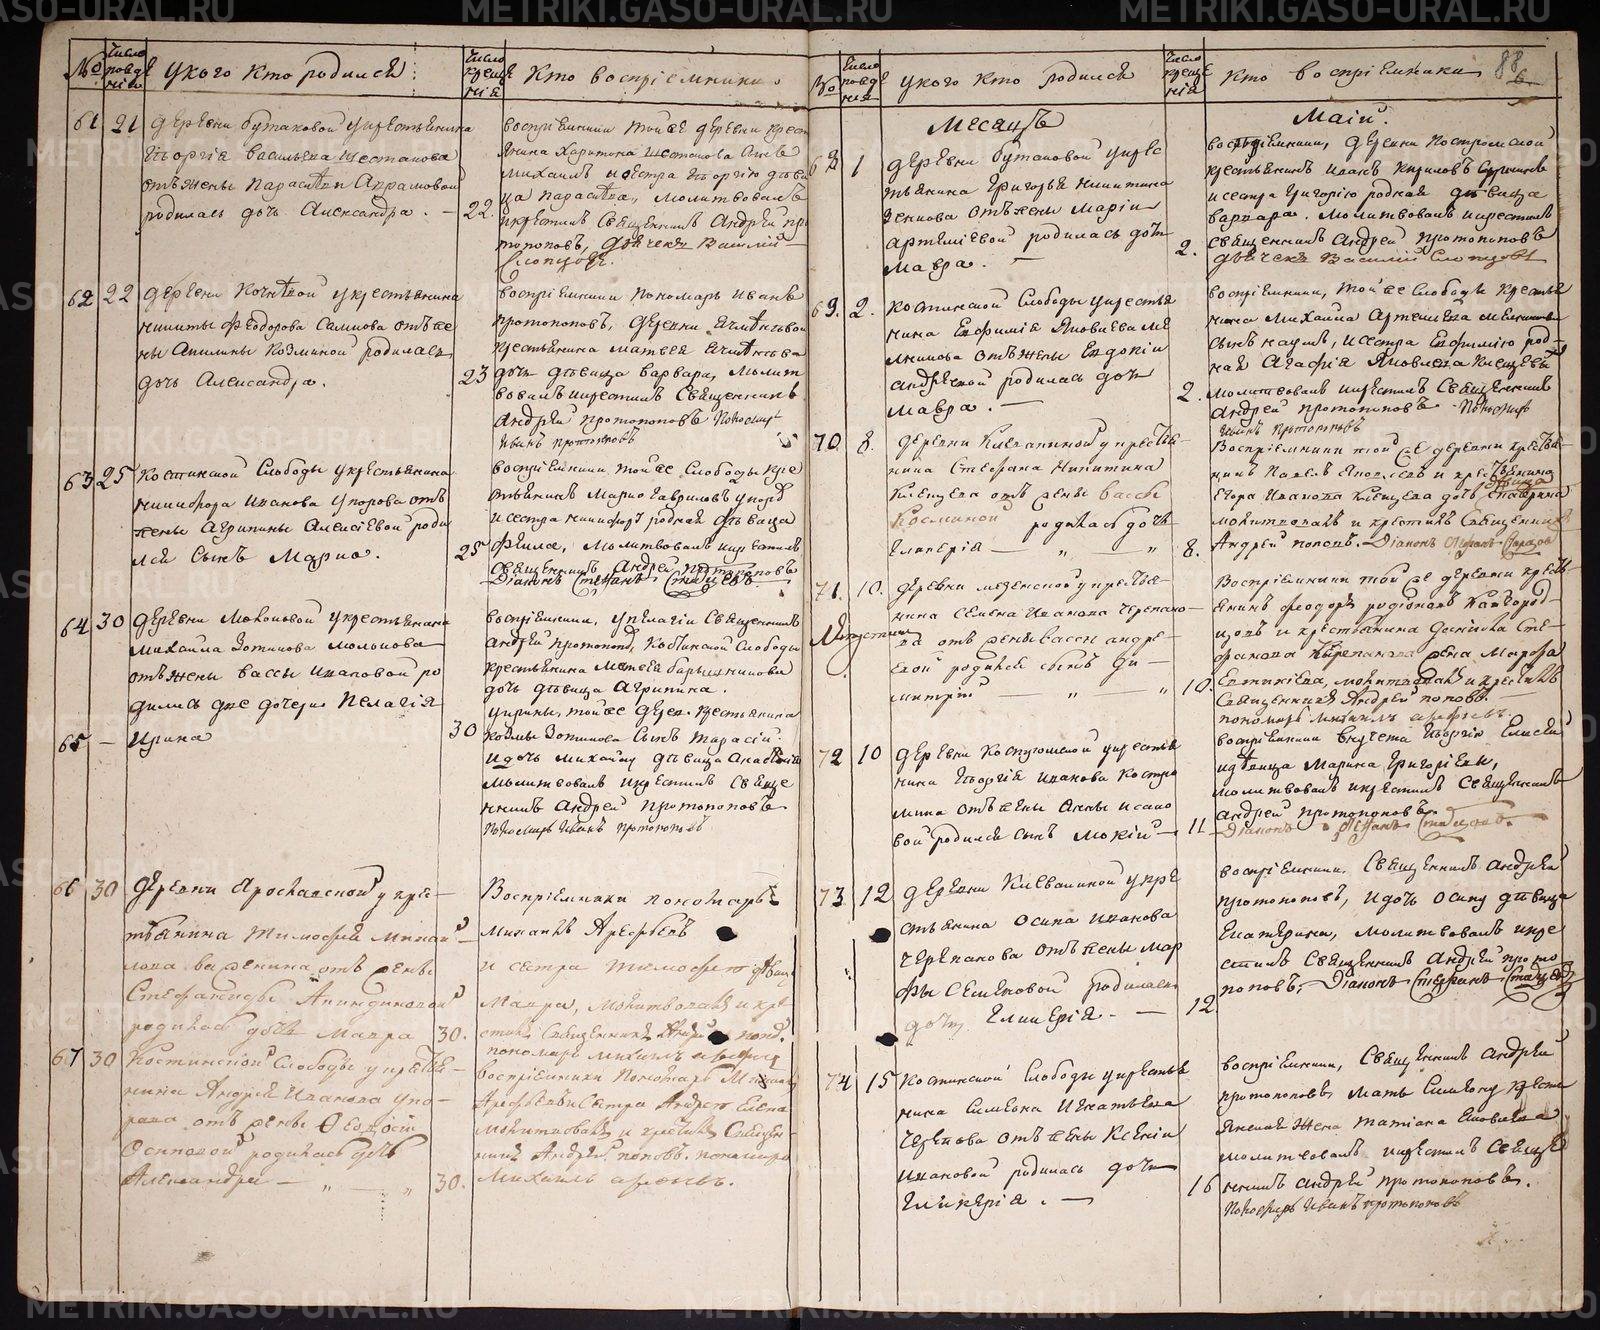 METRIKI.GASO-URAL.RU
№
Число рожденія
У кого кто родился
Число крещенія
Кто воспріемники
61 21
деревни Бутаковой у крестьянина
Георгія Васильева Шестакова
отъ жены Параскевы Абрамовой
родилась дочь Александра.
22
воспріемники той же деревни крест
янина Харитона Шестакова сынъ
Михаилъ и сестра Георгію дѣви
ца Параскева, молитвовалъ
и крестилъ Священникъ Андрей Про
топоповъ, дьячекъ Василій
Слопцовъ.
62 22
деревни Кочневой у крестьянина
Никиты Феодорова отъ же
ны Акилины Козминой родилась
дочь Александра.
23
воспріемники Пономарь Иванъ
Протопоповъ, деревни
крестьянина Матвея
дочь дѣвица Варвара, молит
вовалъ и крестилъ Священникъ
Андрей Протопоповъ Пономарь
Иванъ Протопоповъ
63 25
Костинской Слободы у крестьянина
Никифора Иванова Упорова отъ
жены Агрипины Алексіевой роди
лся сынъ Марко.
25
воспріемники той же Слободы кре
стьянинъ Марко Гавриловъ Упоровъ
и сестра Никифору родная дѣвица
Фекла, молитвовалъ и крестилъ
Священникъ Андрей Протопоповъ
Діаконъ Стефанъ Стацевъ
64 30
деревни Молоковой у крестьянина
Михаила Зотикова Молокова
отъ жены Вассы Ивановой ро
дились две дочери Пелагія
65 —
Ирина
воспріемники, у Пелагіи Священникъ
Андрей Протопоповъ, Костинской Слободы
крестьянина Матвея Барышникова
дочь дѣвица Агрипина.
у Ирины, той же дерев. крестьянина
30
Козмы Зотикова сынъ Тарасій
и дочь Михаилу дѣвица Анастасія
молитвовалъ и крестилъ Свяще
нникъ Андрей Протопоповъ
Пономарь Иванъ Протопоповъ
66 30
деревни Ярославской у крес—
тьянина Тимофея Михай—
лова отъ жены
Стефаниды
родилась дочь Мавра
30.
Воспріемники пономарь
Михаилъ Арефьевъ
и сестра Тимофею дѣвица
Мавра, молитвовалъ и кре
стилъ Священникъ Андрей попов.
пономарь Михаилъ Арефьевъ
67 30
Костинской Слободы у крестья—
нина Андрея Иванова Упо—
рова отъ жены Ѳеодосіи
Осиповой родилась дочь
Александра — „ — „
30.
воспріемники Пономарь Михаилъ
Арефьевъ и сестра Андрею Елена
молитвовалъ и крестилъ Священ—
никъ Андрей поповъ. пономарь
Михаилъ Арефьевъ.
№
Число рожденія
У кого кто родился
Число крещенія
Кто воспріемники
88
Месяцъ
Маій.
68 1
деревни Бутаковой у крес
тьянина Григорья Никитина
Зенкова отъ жены Маріи
Артеміевой родилась дочь
Мавра.
2.
воспріемники, деревни Костромской
крестьянинъ Иванъ Кириловъ
и сестра Григорію родная дѣвица
Варвара. молитвовалъ и крестилъ
Священникъ Андрей Протопоповъ
дьячекъ Василій Слопцовъ
69. 2.
Костинской Слободы у крестья
нина Евфимія Яковлева Ме
лкишова отъ жены Евдокіи
Андреевой родилась дочь
Мавра. —
2.
воспріемники, той же Слободы крестья
нина Михаила Артемьева
сынъ Наумъ, и сестра Евфимію род—
ная Агафія Яковлева
молитвовалъ и крестилъ Священникъ
Андрей Протопоповъ Пономарь
Иванъ Протопоповъ
70 8.
деревни Клевакиной у крестья—
нина Стефана Никитина
Клевцева отъ жены Вассы
Косминой родилась дочь
Гликерія — „ — „
8.
Воспріемники той же деревни крестья—
нинъ Павелъ Яковлевъ и крестьянина
Егора Иванова Клевцева дочь дѣвица
молитвовалъ и крестилъ Священникъ
Андрей поповъ. Діаконъ Стефанъ Стацевъ
71. 10.
деревни Мезенской у крестья—
нина Семена Иванова Черепано—
ва отъ жены Вассы Андре—
евой родился сынъ Ди—
митрій — „ — „
10.
Воспріемники той же деревни кресть—
янинъ Феодоръ Родіоновъ Кайгород—
цовъ и крестьянина Даніила Сте—
фанова Черепанова жена Марфа
молитвовалъ и крестилъ
Священникъ Андрей поповъ.
пономарь Михаилъ Арефьевъ.
72 10
деревни Костромской у крестья
нина Георгія Иванова Костро
мина отъ жены Анны Исако
вой родился сынъ Мокій —
11
воспріемники Георгію Елисей
и дѣвица Марина Григоріева,
молитвовалъ и крестилъ Священникъ
Андрей Протопоповъ.
Діаконъ Стефанъ Стацевъ.
73 12
деревни Клевакиной у кре
стьянина Осипа Иванова
Черепанова отъ жены Мар
фы Семеновой родилась
дочь Гликерія. —
12.
воспріемники, Священникъ Андрей
Протопоповъ, и дочь Осипу дѣвица
Екатерина, молитвовалъ и кре
стилъ Священникъ Андрей Прото
поповъ, Діаконъ Стефанъ Стацевъ
74 15
Костинской Слободы у крестья
нина Симеона Игнатьева
отъ жены Ксеніи
Ивановой родилась дочь
Гликерія. —
16
воспріемники, Священникъ Андрей
Протопоповъ мать Симеону крестья
янская жена Татіана Яковлева
молитвовалъ и крестилъ Свяще
нникъ Андрей Протопоповъ.
Пономарь Иванъ Протопоповъ